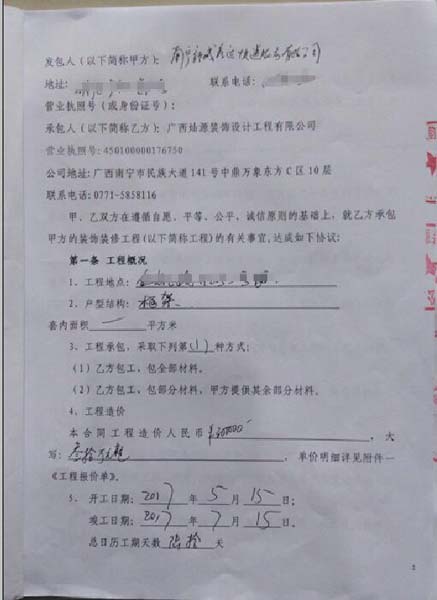 发包人(以下简称甲方):
地址: 联系电话:
营业执照号(或身份证号):
承包人(以下简称乙方):广西灿源装饰设计工程有限公司
营业执照号:450100000176750
公司地址:广西南宁市民族大道141号中鼎万象东方C区10层
联系电话:0771-5858116
甲、乙双方在遵循自愿、平等、公平、诚信原则的基础上,就乙方承包
甲方的装饰装修工程(以下简称工程)的有关事宜,达成如下协议:
第一条 工程概况
1、工程地点:
2、户型结构: 框架
套内面积 一 平方米
3、工程承包,采取下列第(1)种方式:
(1)乙方包工,包全部材料。
(2)乙方包工,包部分材料,甲方提供其余部分材料。
4、工程造价
本合同工程造价人民币 ,大
写: ,单价明细详见附件一
《工程报价单》。
5、开工日期:2017年5月15日;
竣工日期:2017年7月15日。
总日历工期天数 陆拾 天
2